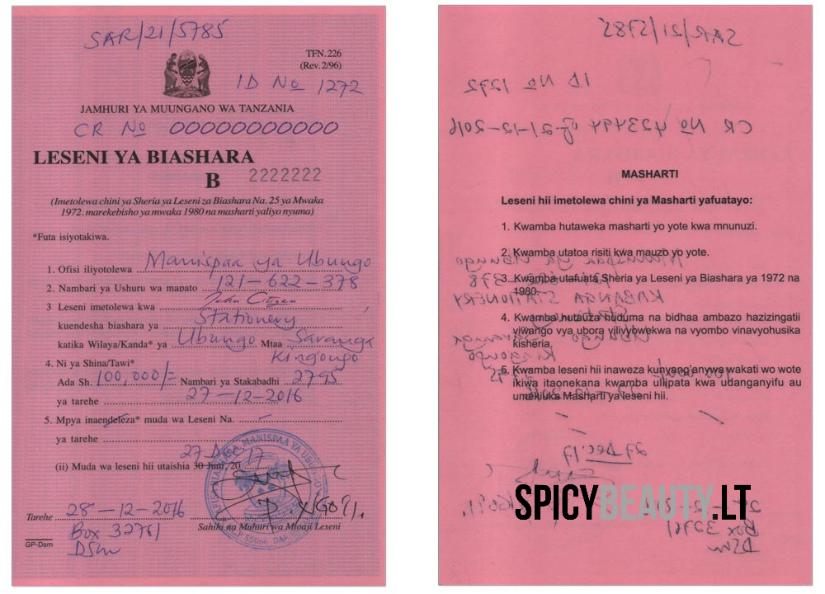 SAR/21/5785
TFN. 226
(Rev. 2/96)
ID No 1272
JAMHURI YA MUUNGANO WA TANZANIA
CR No 00000000000
LESENI YA BIASHARA
B 2222222
(Imetolewa chini ya Sheria ya Leseni za Biashara Na. 25 ya Mwaka
1972. marekebisho ya mwaka 1980 na masharti yaliyo nyuma)
*Futa isiyotakiwa.
1. Ofisi iliyotolewa Manispaa ya Ubungo
2. Nambari ya Ushuru wa manato 121-622-378
3 Leseni imetolewa kwa John Citizen
kuendesha biashara ya Stationery
katika Wilaya/Kanda* ya Ubungo Mtaa Saranga
Kingongo
4. Ni ya Shina/Tawi*
Ada Sh. 100,000/= Nambari ya Stakabadhi 2795
ya tarehe 27-12-2016
5. Mpya inaendeleza* muda wa Leseni Na.
ya tarehe
27 Dec 17
(ii) Muda wa leseni hii utaishia 30 Juni, 20
Tarehe 28-12-2016
Sahihi na Muhuri wa Mtoaji Leseni
Box 32761
DSm
GP-Dsm
SAR/21/5785
ID No 1272
CR No 423494 of 21-12-2016
MASHARTI
Leseni hii imetolewa chini ya Masharti yafuatayo:
1. Kwamba hutaweka masharti yo yote kwa mnunuzi.
2. Kwamba utatoa risiti kwa mauzo yo yote.
3. Kwamba utafuata Sheria ya Leseni ya Biashara ya 1972 na
1980.
KABANGA STATIONERY
4. Kwamba hutauza huduma na bidhaa ambazo hazizingatii
viwango vya ubora vilivyowekwa na vyombo vinavyohusika
kisheria.
5. Kwamba leseni hii inaweza kunyang'anywa wakati wo wote
ikiwa itaonekana kwamba ulipata kwa udanganyifu au
umekiuka Masharti ya leseni hii.
27 Dec 17
SPICYBEAUTY.LT
Box 32761
DSm